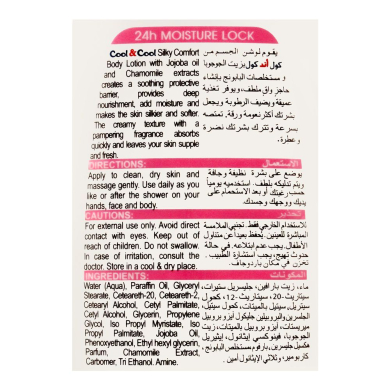 24h MOISTURE LOCK
Cool&Cool Silky Comfort
Body Lotion with Jojoba oil
and Chamomile extracts
creates a soothing protective
barrier, provides deep
nourishment, add moisture and
makes the skin silkier and softer.
The creamy texture with a
pampering fragrance absorbs
quickly and leaves your skin supple
and fresh.
يقوم لوشن الجسم من
كول أند كول بزيت الجوجوبا
و مستخلصات البابونج بإنشاء
حاجز واق ملطف، ويوفر تغذية
عميقة ويضيف الرطوبة ويجعل
بشرتك أكثر نعومة ورقة. تمتصه
بسرعة وتترك بشرتك نضرة
وعطرة.
DIRECTIONS:
Apply to clean, dry skin and
massage gently. Use daily as you
like or after the shower on your
hands, face and body.
الاستعمال:
يوضع على بشرة نظيفة وجافة
ويتم تدليكه بلطف. استخدميه يومياً
حسب رغبتك أو بعد الاستحمام على
يديك ووجهك وجسدك.
CAUTIONS:
For external use only. Avoid direct
contact with eyes. Keep out of
reach of children. Do not swallow.
In case of irritation, consult the
doctor. Store in a cool & dry place.
تحذير:
للاستخدام الخارجي فقط. تجنبي الملامسة
المباشرة للعينين. يحفظ بعيداً عن متناول
الأطفال. يجب عدم ابتلاعه. في حالة
حدوث تهيج، يجب استشارة الطبيب.
يخزن في مكان بارد وجاف.
INGREDIENTS:
Water (Aqua), Paraffin Oil, Glyceryl
Stearate, Ceteareth-20, Ceteareth-2,
Cetearyl Alcohol, Cetyl Palmitate,
Cetyl Alcohol, Glycerin, Propylene
Glycol, Iso Propyl Myristate, Iso
Propyl Palmitate, Jojoba Oil,
Phenoxyethanol, Ethyl hexyl glycerin,
Parfum, Chamomile Extract,
Carbomer, Tri Ethanol, Amine.
المكونات:
ماء، زيت بارافين، جليسريل ستيرات،
سيتاريث-20، سيتاريث-12، كحول